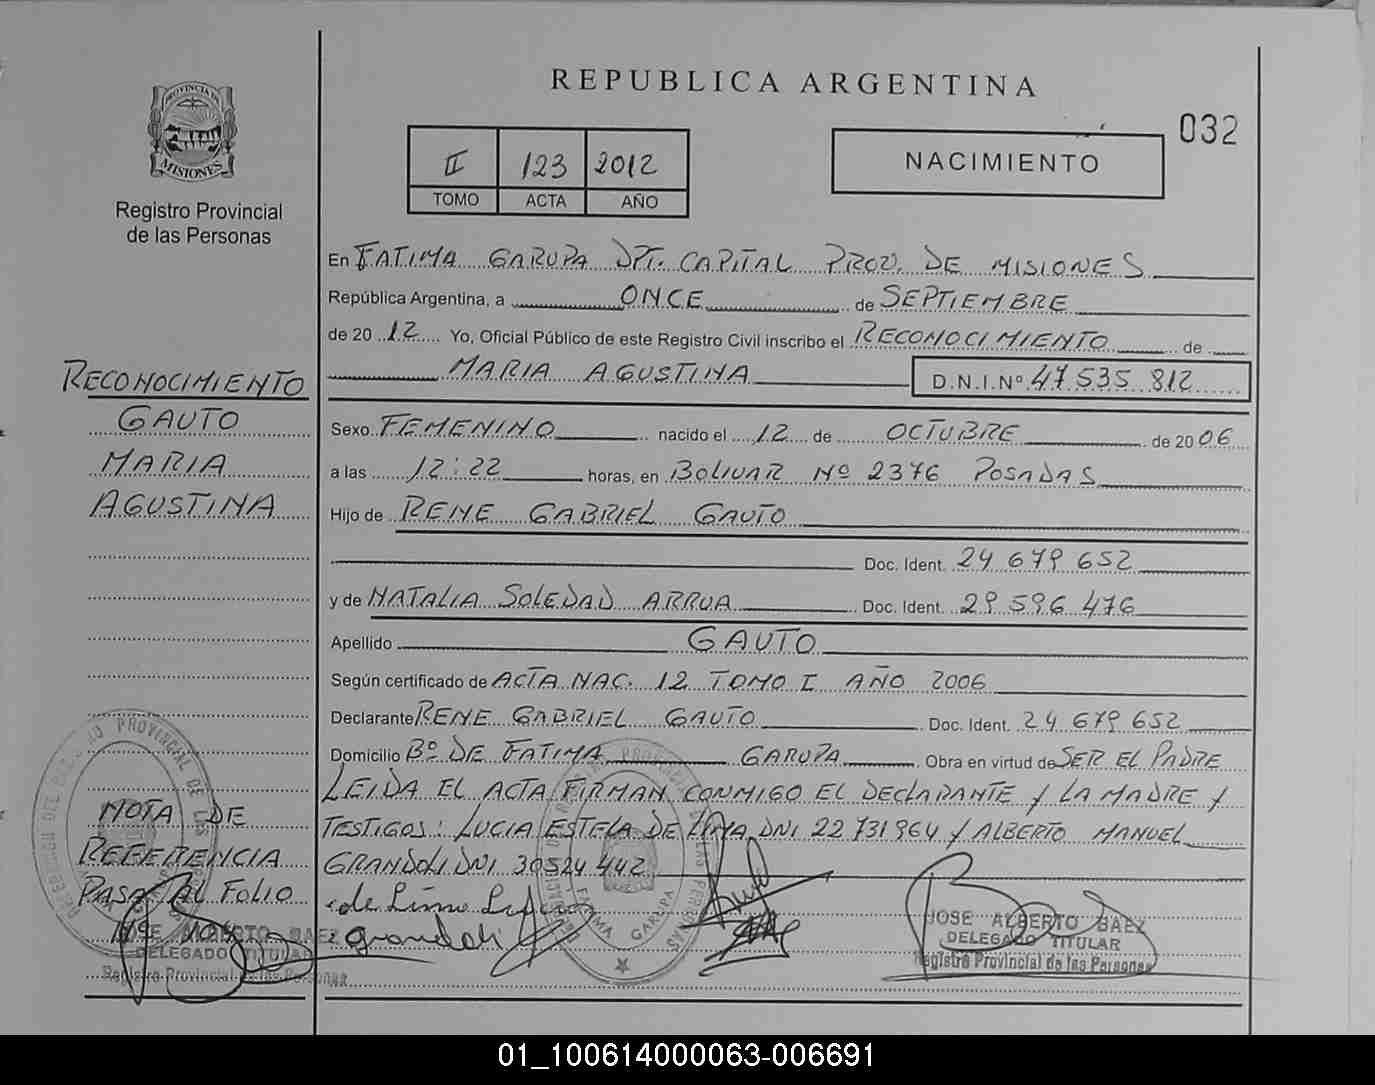 REPUBLICA ARGENTINA
032
PROVINCIA DE
MISIONES
Registro Provincial
de las Personas
II 123 2012
TOMO ACTA AÑO
NACIMIENTO
En FATIMA GARUPA DPT. CAPITAL PROV. DE MISIONES
República Argentina, a ONCE de SEPTIEMBRE
de 20 12 Yo, Oficial Público de este Registro Civil inscribo el RECONOCIMIENTO de
MARIA AGUSTINA D.N.I.Nº 47 535 812
Sexo FEMENINO nacido el 12 de OCTUBRE de 20 06
a las 12:22 horas, en BOLIVAR Nº 2376 POSADAS
Hijo de RENE GABRIEL GAUTO
Doc. Ident. 24 679 652
y de NATALIA SOLEDAD ARRUA Doc. Ident. 29 596 476
Apellido GAUTO
Según certificado de ACTA NAC. 12 TOMO I AÑO 2006
Declarante RENE GABRIEL GAUTO Doc. Ident. 24 679 652
Domicilio Bº DE FATIMA GARUPA Obra en virtud de SER EL PADRE
LEIDA EL ACTA FIRMAN CONMIGO EL DECLARANTE Y LA MADRE Y
TESTIGOS: LUCIA ESTELA DE LIMA DNI 22 731 964 Y ALBERTO MANUEL
GRANDOLI DNI 30524 442
de Lima
Grandoli
JOSE ALBERTO BAEZ
DELEGADO TITULAR
Registro Provincial de las Personas
FATIMA GARUPA
RECONOCIMIENTO
GAUTO
MARIA
AGUSTINA
NOTA DE
REFERENCIA
PASA AL FOLIO
JOSE ALBERTO BAEZ
DELEGADO TITULAR
Registro Provincial de las Personas
01_100614000063-006691